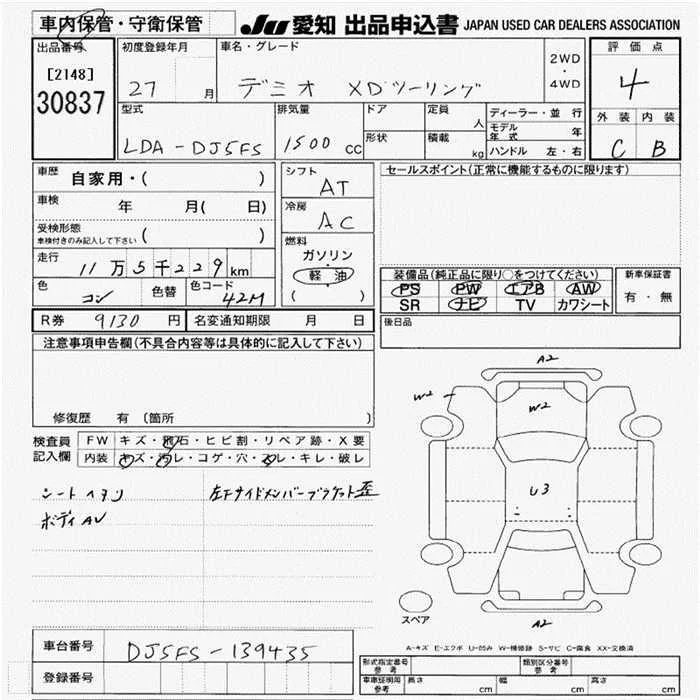 車内保管・守衛保管
JU 愛知 出品申込書 JAPAN USED CAR DEALERS ASSOCIATION
出品番号
[2148]
30837
初度登録年月
27 月
車名・グレード
デミオ XDツーリング
2WD
・
4WD
評価点
4
外装 内装
C B
型式
LDA-DJ5FS
排気量
1500 CC
ドア
形状
定員 人
積載 kg
ディーラー・並行
モデル年式 年
ハンドル 左・右
車歴
自家用・( )
車検
年 月( 日)
受検形態
車検付きのみ記入して下さい ( )
走行
11万5千229km
色
コン
色替
色コード
42M
シフト
AT
冷房
AC
燃料
ガソリン
・
軽油
( )
セールスポイント(正常に機能するものに限ります)
装備品(純正品に限り○をつけてください)
PS PW エアB AW
SR ナビ TV カワシート
新車保証書
有・無
R券 9130 円
名変通知期限 月 日
後日品
注意事項申告欄(不具合内容等は具体的に記入して下さい)
修復歴 有 〔箇所 〕
検査員
記入欄
FW キズ・飛石・ヒビ割・リペア跡・X要
内装 キズ・汚レ・コゲ・穴・スレ・キレ・破レ
シートヘタリ
ボディAU
左下サイドメンバーブラケット歪
A2
W2
W2
U3
A2
スペア
A-キズ E-エクボ U-凹み W-補修跡 S-サビ C-腐食 XX-交換済
車台番号
DJ5FS-139435
登録番号
形式指定番号
参考
類別区分番号
参考
車車証明用
参考
長さ cm
幅 cm
高さ cm